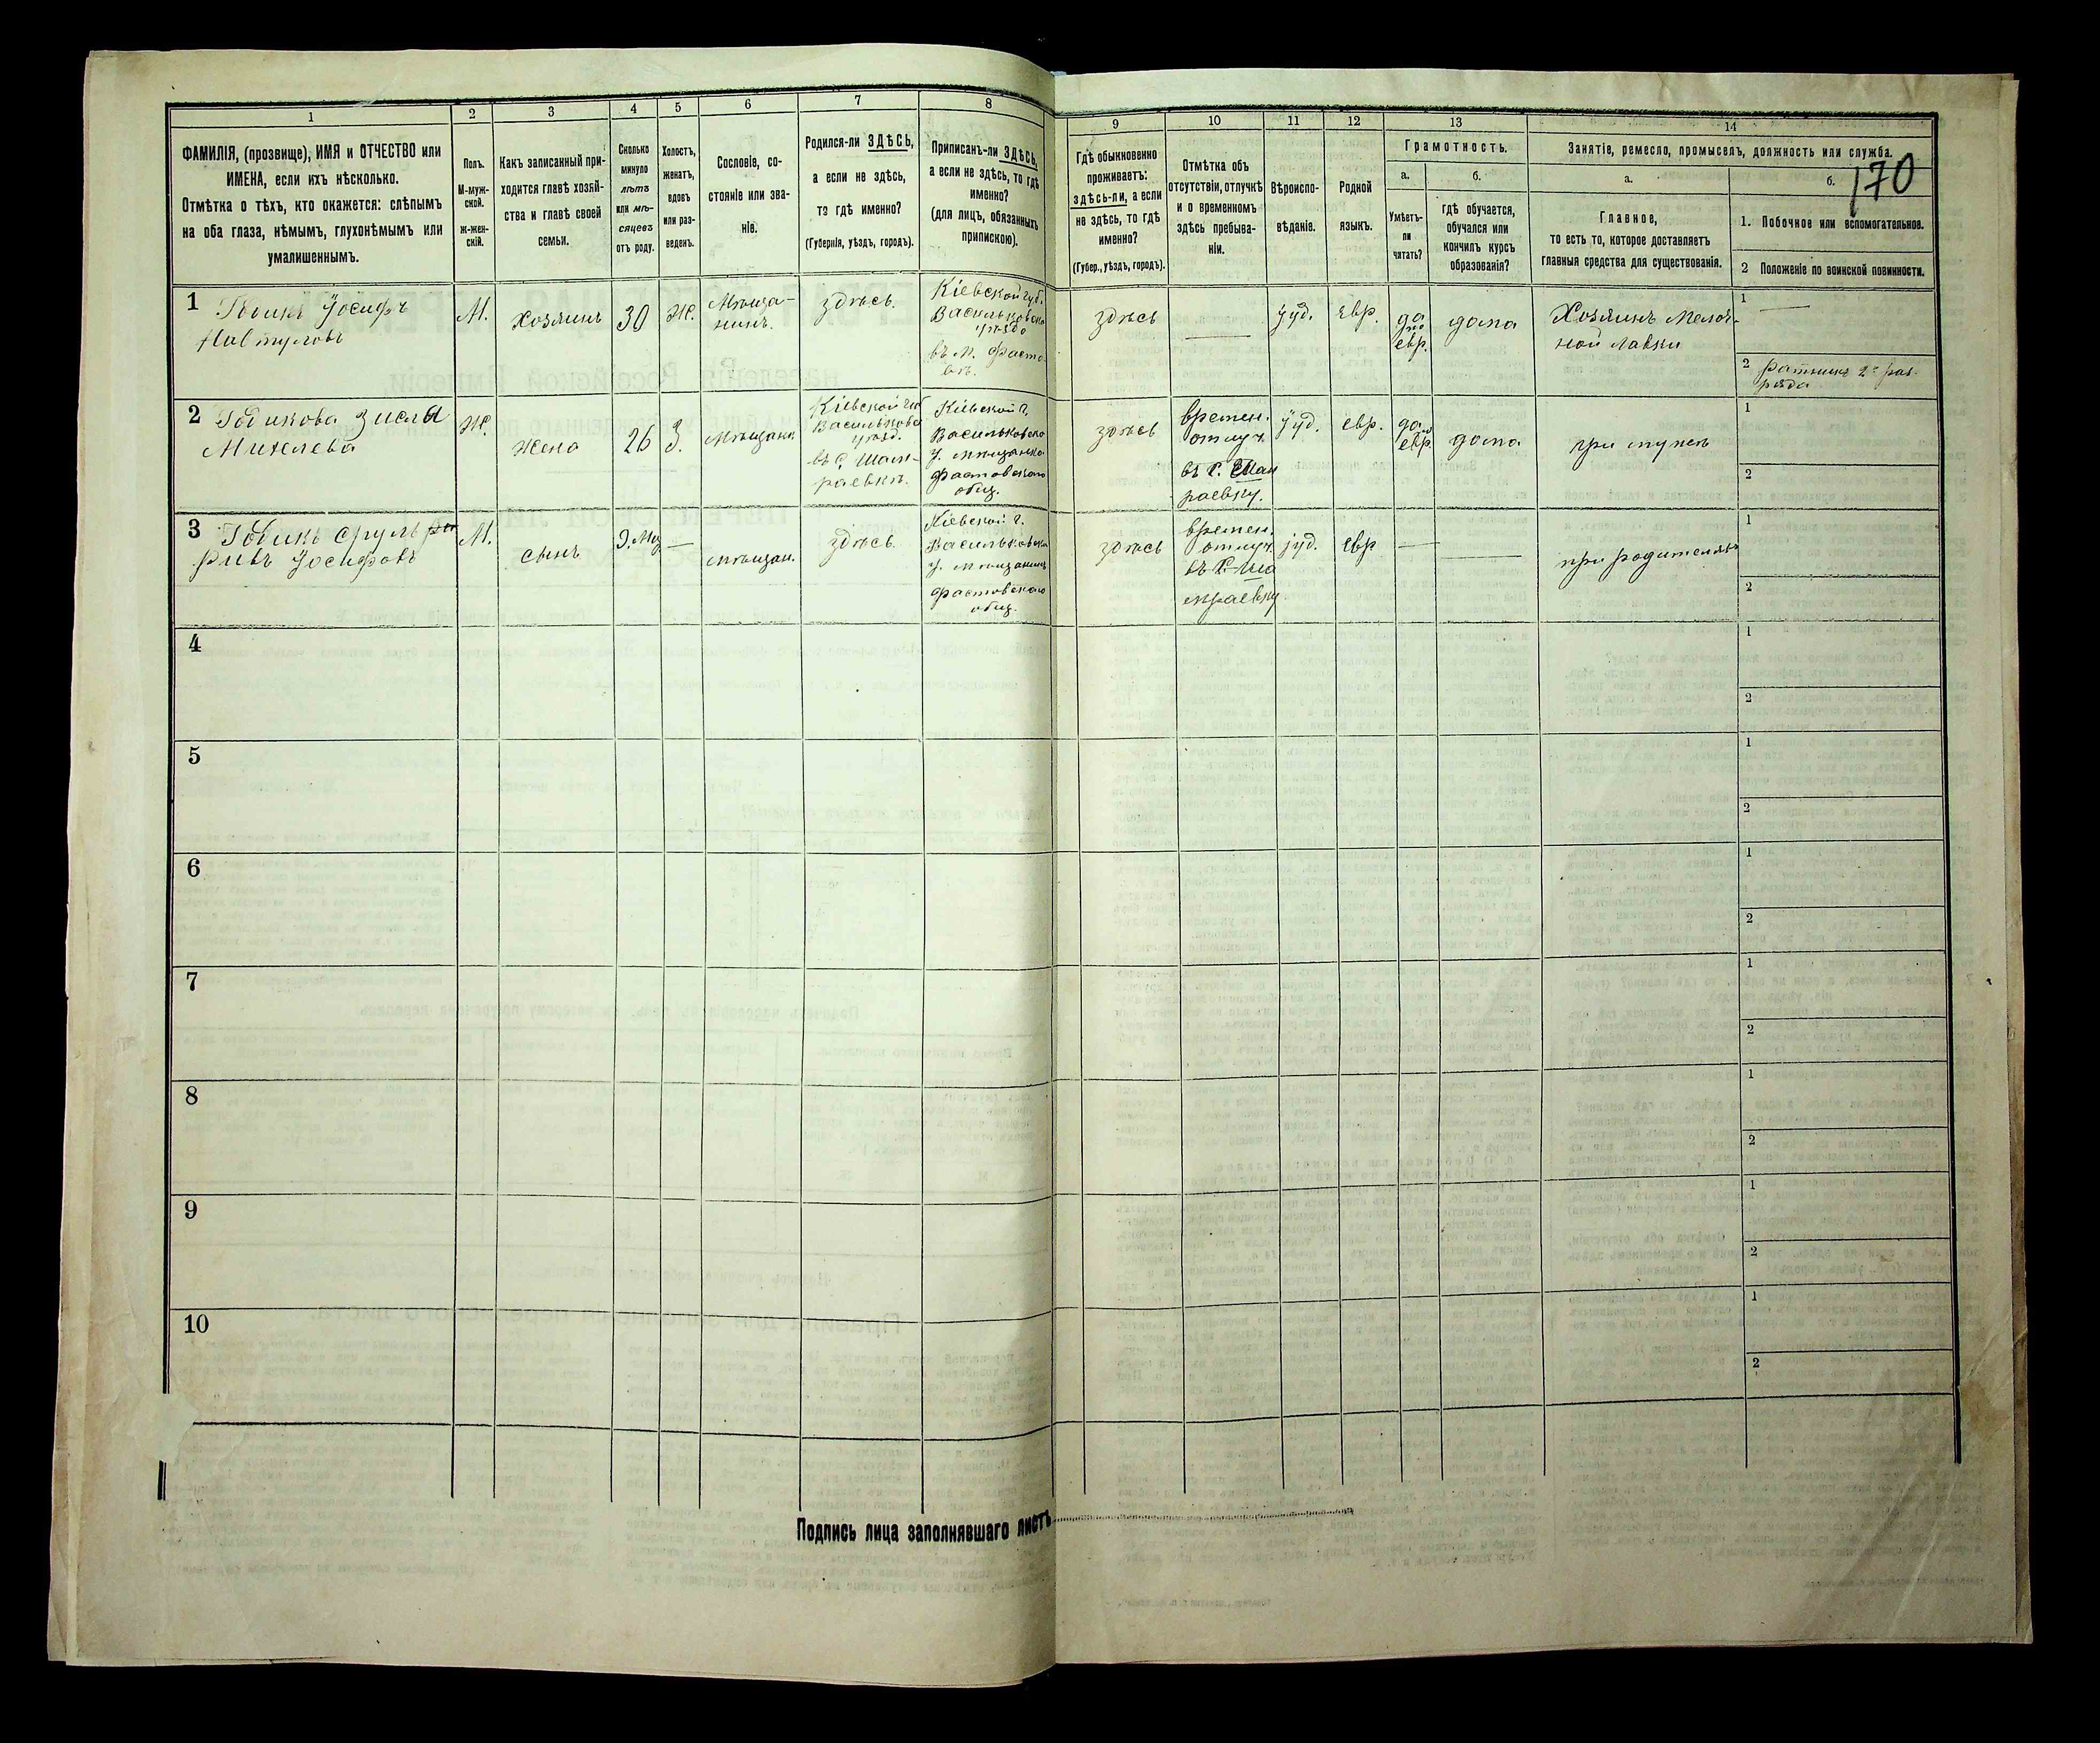 1
ФАМИЛІЯ, (прозвище), ИМЯ и ОТЧЕСТВО или
ИМЕНА, если ихъ нѣсколько.
Отмѣтка о тѣхъ, кто окажется: слѣпымъ
на оба глаза, нѣмымъ, глухонѣмымъ или
умалишеннымъ.
2
Полъ.
М-муж-
ской.
ж-жен-
скій.
3
Какъ записанный при-
ходится главѣ хозяй-
ства и главѣ своей
семьи.
4
Сколько
минуло
лѣтъ
или мѣ-
сяцевъ
отъ роду.
5
Холостъ,
женатъ,
вдовъ
или раз-
веденъ.
6
Сословіе, со-
стояніе или зва-
ніе.
7
Родился-ли ЗДѢСЬ,
а если не здѣсь,
то гдѣ именно?
(Губернія, уѣздъ, городъ).
8
Приписанъ-ли ЗДѢСЬ,
а если не здѣсь, то гдѣ
именно?
(для лицъ, обязанныхъ
припискою).
9
Гдѣ обыкновенно
проживаетъ:
здѣсь-ли, а если
не здѣсь, то гдѣ
именно?
(Губер., уѣздъ, городъ).
10
Отмѣтка объ
отсутствіи, отлучкѣ
и о временномъ
здѣсь пребыва-
ніи.
11
Вѣроиспо-
вѣданіе.
12
Родной
языкъ.
13
Грамотность.
а.
Умѣетъ-
ли
читать?
б.
гдѣ обучается,
обучался или
кончилъ курсъ
образованія?
14
Занятіе, ремесло, промыселъ, должность или служба.
170
а.
Главное,
то есть то, которое доставляетъ
главныя средства для существованія.
б.
1. Побочное или вспомогательное.
2 Положеніе по воинской повинности.
1
Іосифъ
М.
хозяинъ
30
Ж.
Мѣща-
нинъ.
здѣсь.
Кіевской губ.
Васильковско
уѣзда
въ м. Фасто-
вѣ.
здѣсь
іуд.
евр.
да
по
евр.
дома
Хозяинъ мелоч-
ной лавки
1
2 Ратникъ 2го раз-
ряда
2
Михелева
Ж.
жена
26
З.
мѣщанк.
Кіевской губ
Васильковск
уѣзд.
въ с. Шам-
раевкѣ.
Кіевской г.
Васильковско
у. мѣщанка
Фастовского
общ.
здѣсь
времен.
отлуч.
въ с. Шам
раевку.
іуд.
евр.
да
евр.
дома
при мужѣ
1
2
3
Іосифовъ
М.
сынъ
9. Мѣ
мѣщан.
здѣсь
Кіевской г.
Васильковско
у. мѣщанинъ
Фастовскаго
общ.
здѣсь
времен.
отлуч.
въ с. Ша
мраевку
іуд.
евр
при родителяхъ
1
2
4
1
2
5
1
2
6
1
2
7
1
2
8
1
2
9
1
2
10
1
2
Подпись лица заполнявшаго листъ